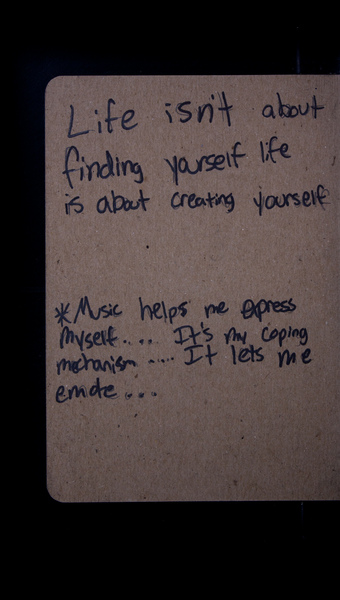 Life isn't about
finding yourself life
is about creating yourself
*Music helps me express
Myself.... It's my coping
mechanism ..... It lets me
emote...